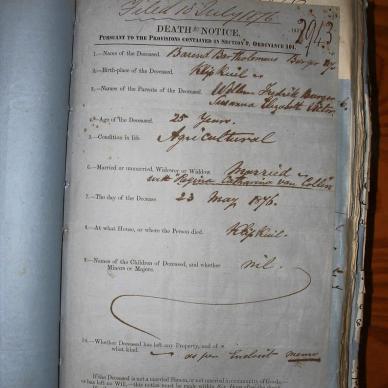 Filed 10 July 1876
2943
DEATH NOTICE.
PURSUANT TO THE PROVISIONS CONTAINED IN SECTION 9, ORDINANCE 104.
1.—Name of the Deceased. Barend Bartholomeus Burger
2.—Birth-place of the Deceased. Klip Kuil
3.—Names of the Parents of the Deceased. Willem Fredrik Burger &
Susanna Elizabeth
4.—Age of the Deceased. 25 Years.
5.—Condition in life. Agricultural
6.—Married or unmarried, Widower or Widow. Married
with Regina Catharina van
7.—The day of the Decease 23 May 1876.
8.—At what House, or where the Person died. Klip Kuil
9.—Names of the Children of Deceased, and whether nil.
Minors or Majors.
10.—Whether Deceased has left any Property, and of
what kind. as per
If the Deceased is not a married Person, or not married in community of